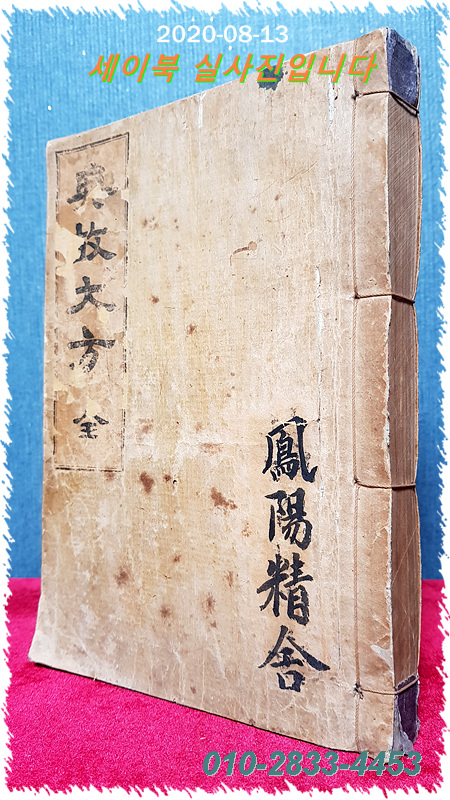 2020-08-13
세이북 실사진입니다
典攷大方 全
鳳陽精舍
010-2833-4453